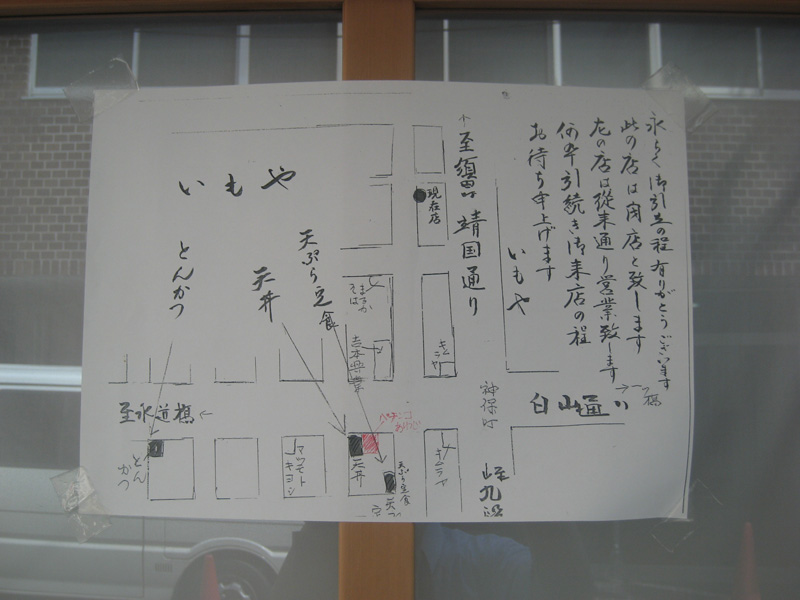 永らく御引立の程有りがとうございます
此の店は閉店と致します
左の店は従来通り営業致します
何卒引続き御来店の程
お待ち申上げます
いもや
いもや
至須田町
靖国通り
現在店
天ぷら定食
天丼
とんかつ
まるか
そば
吉本興業
キムラヤ
白山通り
一ツ橋
神保町
至水道橋
至九段
とん
かつ
マツモト
キヨシ
天丼
パチンコ
天ぷら定食
キムラヤ